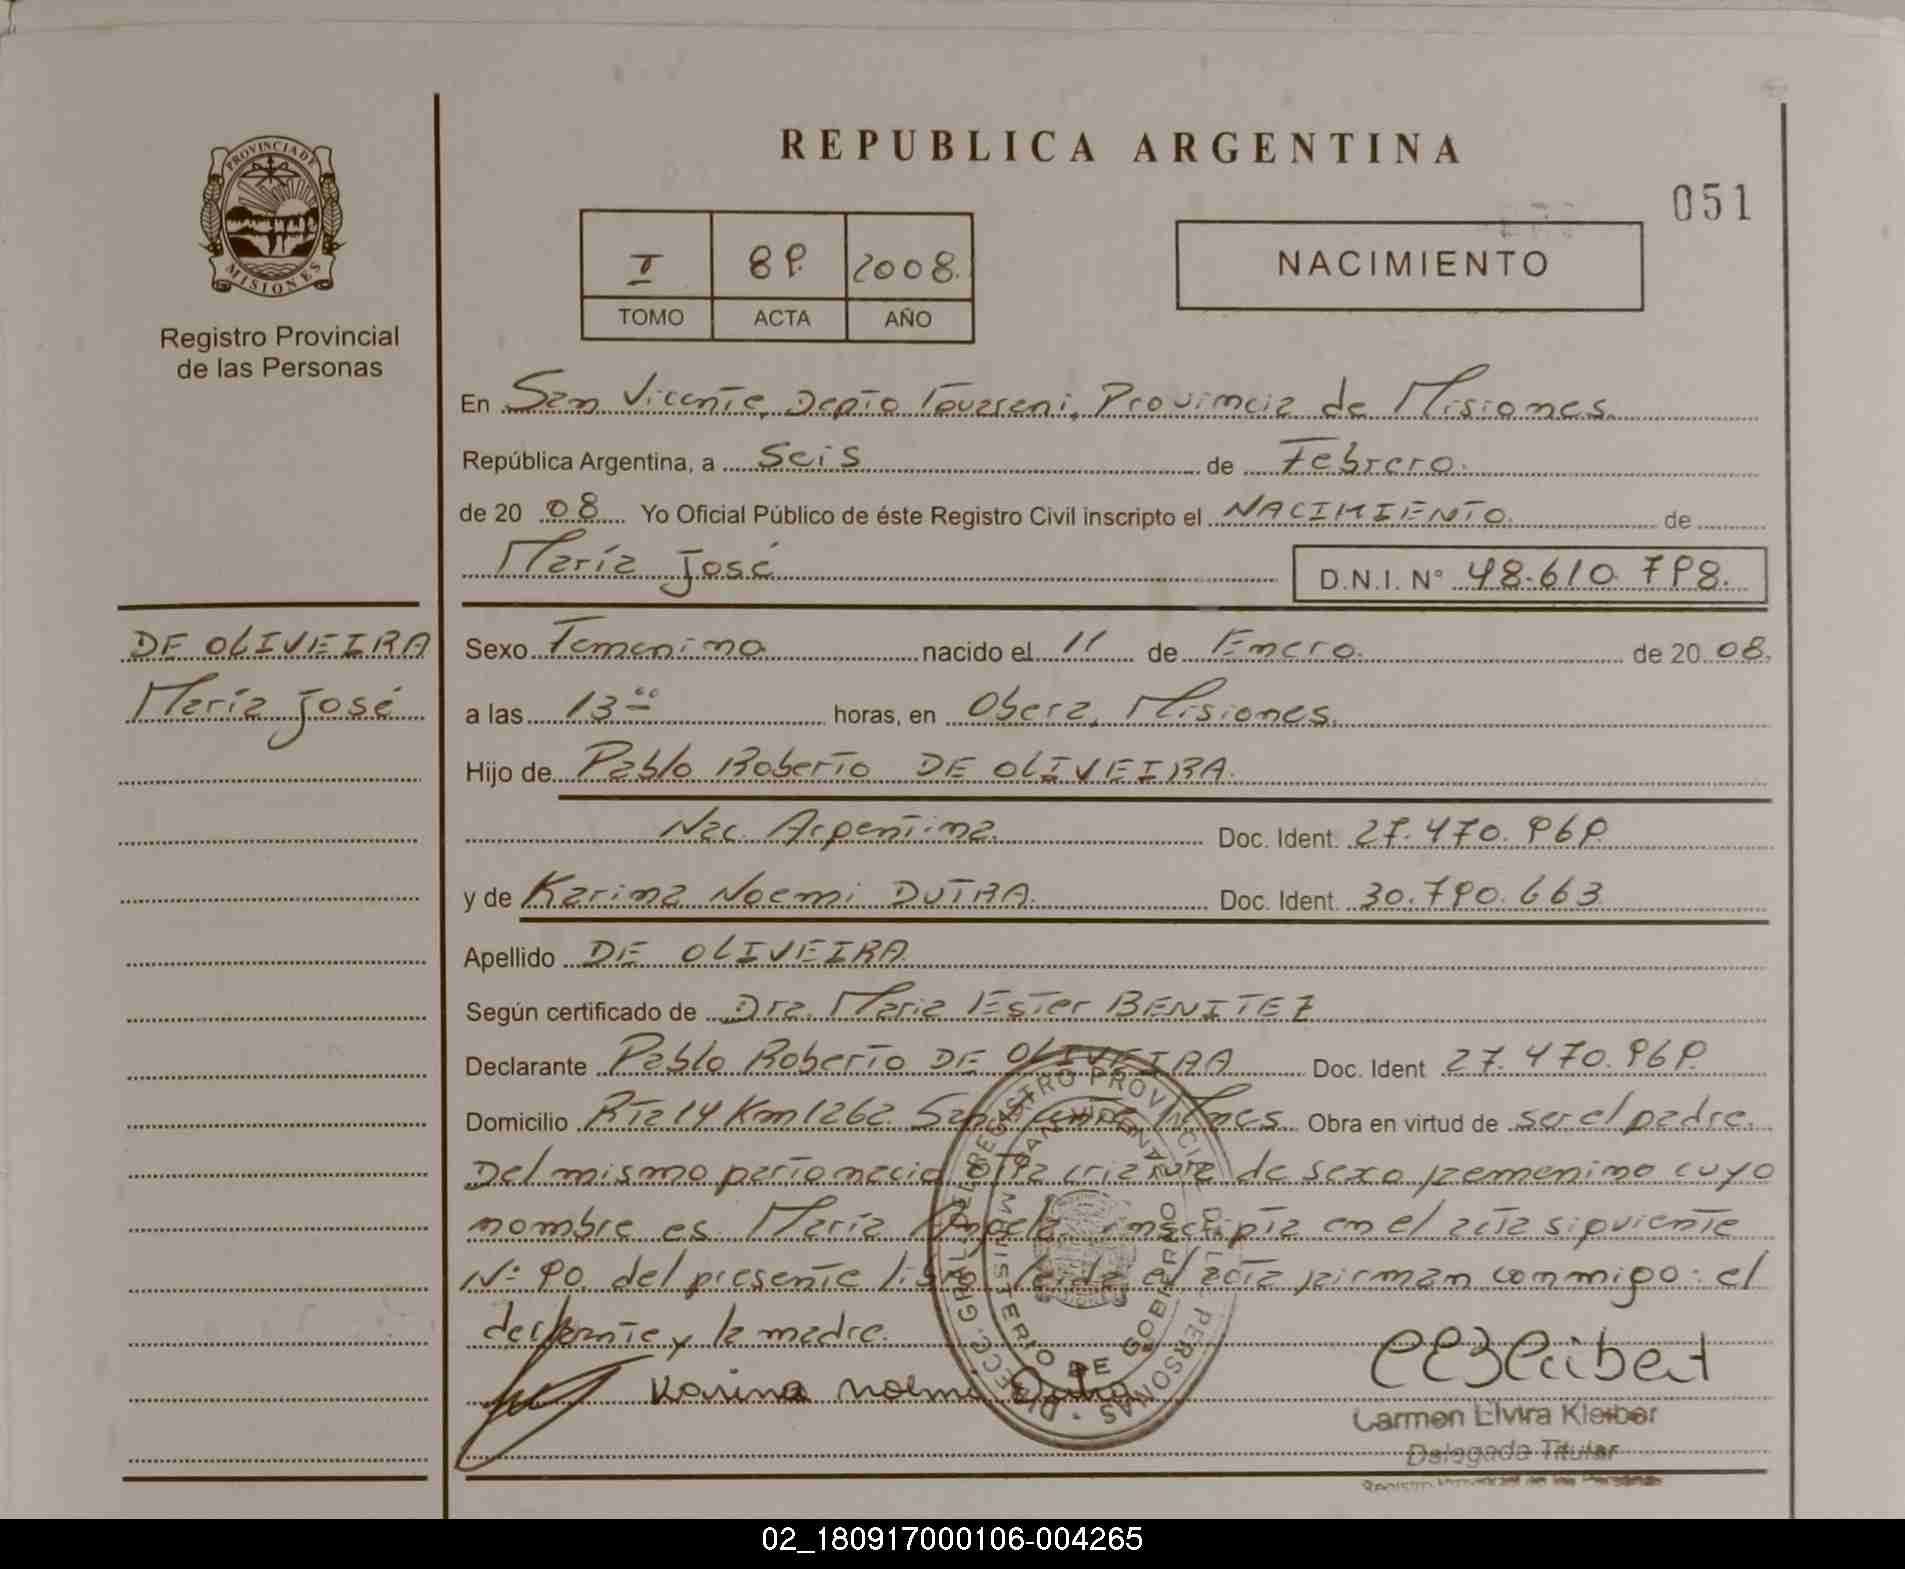 REPUBLICA ARGENTINA
051
PROVINCIA DE MISIONES
Registro Provincial
de las Personas
I 89. 2008.
TOMO ACTA AÑO
NACIMIENTO
En San Vicente, Depto Guaraní, Provincia de Misiones.
República Argentina, a Seis de Febrero.
de 20 08 Yo Oficial Público de éste Registro Civil inscripto el NACIMIENTO de
María José D.N.I. N° 48.610.798.
DE OLIVEIRA
María José
Sexo Femenino nacido el 11 de Enero. de 20 08.
a las 13 00 horas, en Obera, Misiones.
Hijo de Pablo Roberto DE OLIVEIRA.
Nac. Argentina. Doc. Ident. 27.470.969
y de Karina Noemi DUTRA. Doc. Ident. 30.790.663
Apellido DE OLIVEIRA
Según certificado de Dra. Maria Ester BENITEZ
Declarante Pablo Roberto DE OLIVEIRA Doc. Ident 27.470.969
Domicilio Rta 14 Km 1262. San Vicente Mnes Obra en virtud de ser el padre.
Del mismo parto nacio otra criatura de sexo femenino cuyo
nombre es María Angela, inscripta en el acta siguiente
N° 90. del presente libro. Leida el acta firman conmigo: el
declarante y la madre.
Karina Noemi Dutra
DIRECC. GRAL. DEL REGISTRO PROVINCIAL DE L. PERSONAS
MINISTERIO DE GOBIERNO
Carmen Elvira Kleiber
Delegada Titular
Registro Provincial de las Personas
02_180917000106-004265